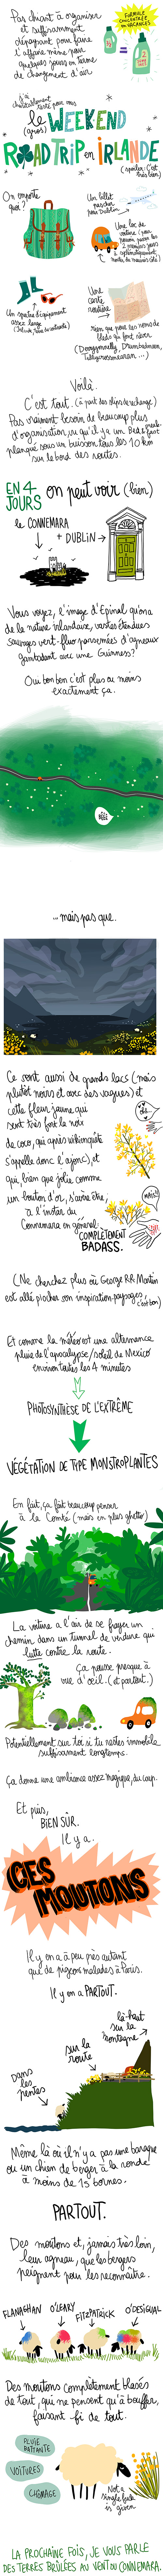 Pas chiant à organiser
et suffisamment
dépaysant pour faire
l'affaire même pour
quelques jours en terme
de changement d'air
FORMULE
CONCENTRÉE
EN VACANCES
j'ai
le (gros) WEEKEND
ROADTRIP en IRLANDE
(spoiler : c'était
très bien)
On emporte
quoi ?
Un billet
pas cher
pour Dublin
Une loc de
voiture
Une carte
routière
Rien que pour les noms de
bleds qui font rêver
Voilà.
C'est tout. (à part des slips de rechange)
Pas vraiment besoin de beaucoup plus
d'organisation, vu qu'il y a un B&B
planqué sous un buisson tous les 10 km
sur le bord des routes.
EN 4
JOURS
on peut voir (bien)
le CONNEMARA
+ DUBLIN
Vous voyez, l'image d'Epinal qu'on a
de la nature irlandaise, vastes étendues
sauvages vert-fluo parsemées d'agneaux
gambadant avec une Guinness ?
Oui bon ben c'est plus ou moins
exactement ça.
... mais pas que.
Ce sont aussi de grands lacs (mais
plutôt noirs et avec des vagues) et
cette fleur jaune qui
sent très fort la noix
de coco, qui après wikinguitte
s'appelle donc l'ajonc), et
qui, bien que jolie comme
un bouton d'or, s'avère être,
à l'instar du
Connemara en général,
COMPLÈTEMENT
BADASS.
(Ne cherchez plus où George RR Martin
est allé pêcher son inspiration paysages,
c'est bon)
Et comme la météo est une alternance
pluie de l'apocalypse/soleil de Mexico
environ toutes les 4 minutes
PHOTOSYNTHÈSE DE L'EXTRÊME
VÉGÉTATION DE TYPE MONSTROPLANTES
En fait, ça fait beaucoup penser
à la Comté (mais en plus ghetto)
La voiture a l'air de se frayer un
chemin dans un tunnel de verdure qui
lutte contre la route.
Ça pousse presque à
vue d'oeil. (et partout.)
Potentiellement sur toi si tu restes immobile
suffisamment longtemps.
Ça donne une ambiance assez magique, du coup.
Et puis,
BIEN SÛR.
Il y a.
CES
MOUTONS
Il y en a à peu près autant
que de pigeons malades à Paris.
Il y en a PARTOUT.
Dans
les
pentes
sur la
route
là-haut
sur la
montagne
Même là où il n'y a pas une baraque
ou un chien de berger à la ronde
à moins de 15 bornes.
PARTOUT.
Des moutons et, jamais très loin,
leur agneau, que les bergers
peignent pour les reconnaître.
FLANAGHAN
O'LEARY
FITZPATRICK
O'DESIGUAL
Des moutons complètement blasés
de tout, qui ne pensent qu'à bouffer,
faisant fi de tout.
PLUIE
BATTANTE
VOITURES
CHÔMAGE
Not a
single fuck
is given
LA PROCHAINE FOIS, JE VOUS PARLE
DES TERRES BRÛLÉES AU VENT DU CONNEMARA.